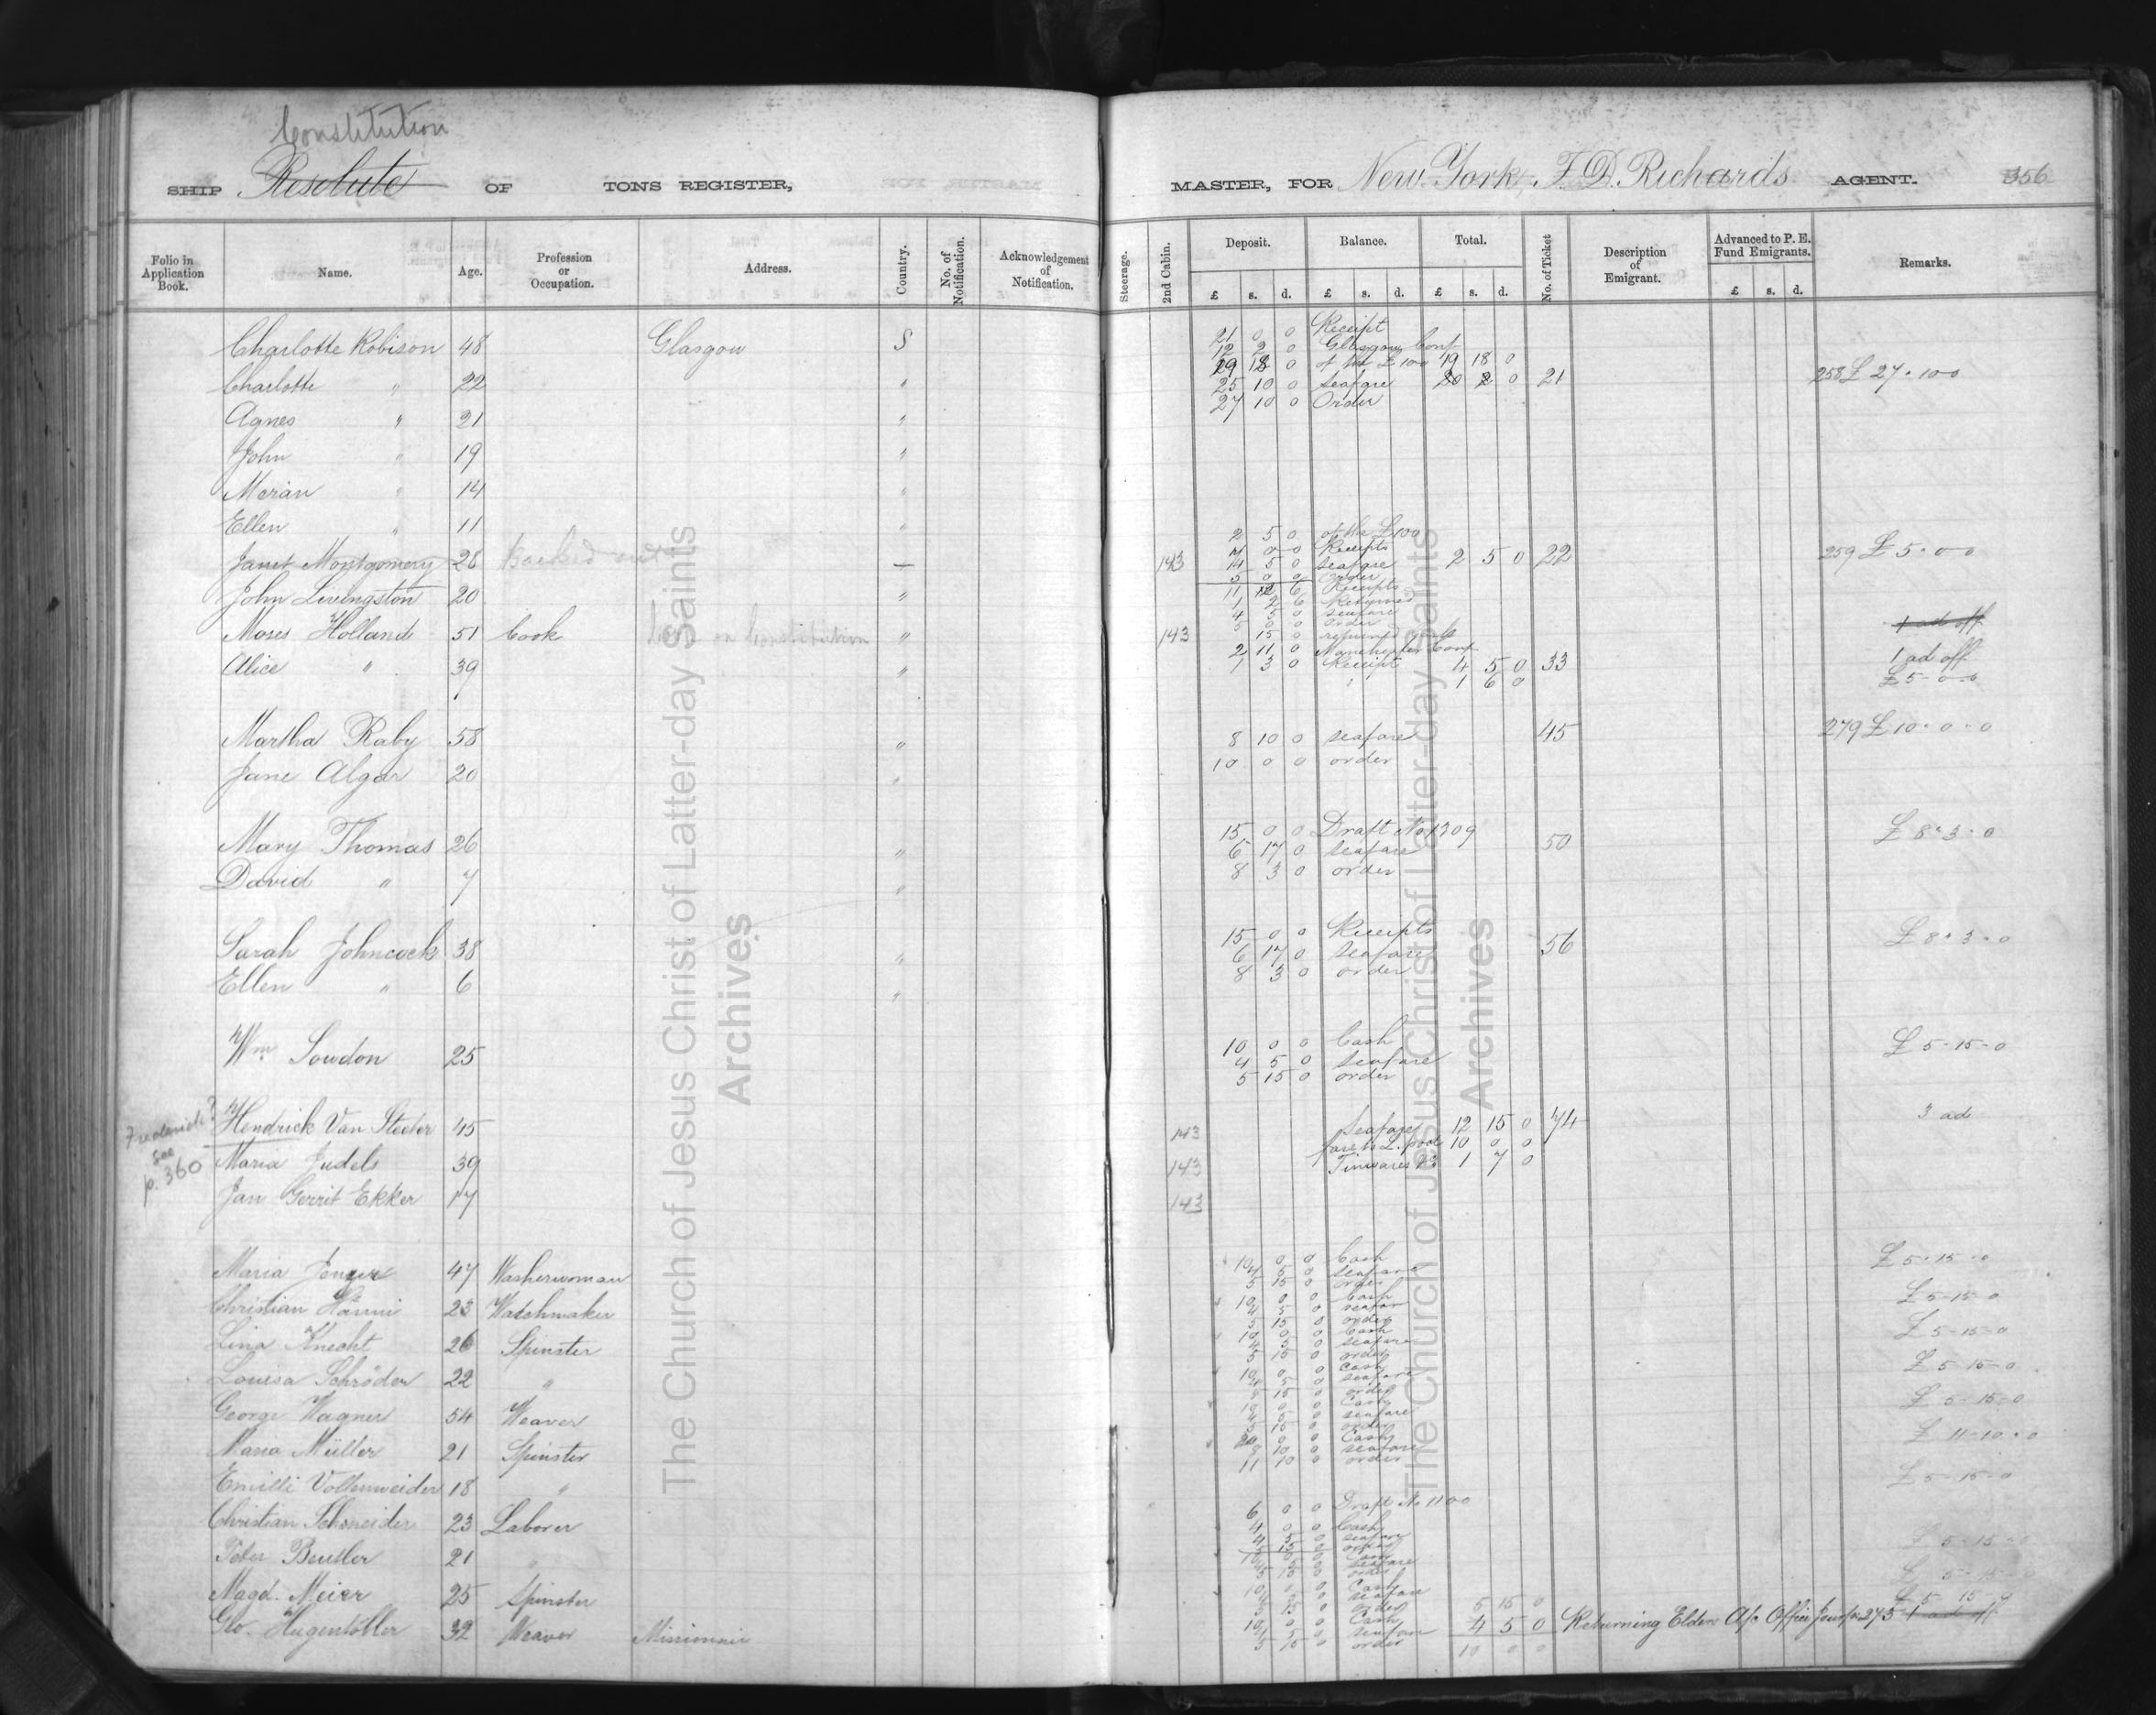 Constitution
SHIP Resolute OF TONS REGISTER, MASTER, FOR New York, F. D. Richards AGENT. 356
Folio in Application Book. Name. Age. Profession or Occupation. Address. Country. No. of Notification. Acknowledgement of Notification. Steerage. 2nd Cabin. Deposit. Balance. Total. No. of Ticket Description of Emigrant. Advanced to P. E. Fund Emigrants. Remarks.
£ s. d. £ s. d. £ s. d. £ s. d.
21 0 0 Receipt
Charlotte Robison 48 Glasgow S 12 2 0 Glasgow Conf
of the £100 19 18 0
Charlotte " 22 " 25 10 0 seafare 0 21 258 £ 27 . 10 0
27 10 0 Order
Agnes " 21 "
John " 19 "
Moran " 14 "
Ellen " 11 "
2 5 0 of the £100
Receipts
Janet Montgomery 28 Backed out — 143 5 0 seafare 2 5 0 22 259 £ 5 . 0 0
5 0 0 order
John Livingston 20 " 11 12 6 Receipts
1 2 6 Returned
4 5 0 seafare
5 0 0 order
Moses Holland 51 Cook on Constitution " 143 15 0 returned 1 ad off
2 11 0 Manchester Conf
Alice " 39 " 1 3 0 Receipt 4 5 0 33 1 ad off
" 1 6 0 £ 5 - 0 - 0
Martha Raby 58 " 8 10 0 seafare 45 279 £ 10 . 0 . 0
Jane Algar 20 " 10 0 0 order
15 0 0 Draft No 1309
Mary Thomas 26 " 6 17 0 seafare 50 £ 8 . 3 . 0
David " 7 " 8 3 0 order
15 0 0 Receipts
Sarah Johncock 38 " 6 17 0 seafare 56 £ 8 . 3 . 0
Ellen " 6 " 8 3 0 order
10 0 0 Cash
Wm Sowdon 25 4 5 0 seafare £ 5 - 15 - 0
5 15 0 order
Frederick?
see
p. 360
Hendrick Van Steeter 45 143 Seafare 12 15 0 74 3 ad
fare to L. pool 10 0 0
Maria Judels 39 143 Tinwares 1 7 0
Jan Gerrit Ekker 17 143
Maria Jenger 47 Washerwoman 10 0 0 Cash £ 5 . 15 . 0
4 5 0 seafare
5 15 0 order
Christian Hänni 23 Watchmaker 10 0 0 Cash £ 5 - 15 - 0
4 5 0 seafare
5 15 0 order
Lina Knecht 26 Spinster 10 0 0 Cash £ 5 - 15 - 0
4 5 0 seafare
5 15 0 order
Louisa Schröder 22 " 10 0 0 Cash £ 5 - 15 - 0
4 5 0 seafare
5 15 0 order
George Wagner 54 Weaver 10 0 0 Cash £ 5 - 15 - 0
4 5 0 seafare
5 15 0 order
Maria Müller 21 Spinster 20 0 0 Cash £ 11 - 10 . 0
8 10 0 seafare
11 10 0 order
Emilli Vollenweider 18 " £ 5 - 15 - 0
6 0 0 Draft No 1100
Christian Schneider 23 Laborer 4 0 0 Cash
4 5 0 seafare
5 15 0 order
Peter Beutler 21 " 10 0 0 Cash
4 5 0 seafare
5 15 0 order
Magd. Meier 25 Spinster 10 0 0 Cash 5 15 0 £ 5 15 0
4 5 0 seafare
5 15 0 order
Geo. Hugentobler 32 Weaver Missionair 10 0 0 Cash 4 5 0 Returning Elder A/c Office Jour p 275 1 ad off
4 5 0 seafare
5 15 0 order 10 0 0
The Church of Jesus Christ of Latter-day Saints
Archives
The Church of Jesus Christ of Latter-day Saints
Archives